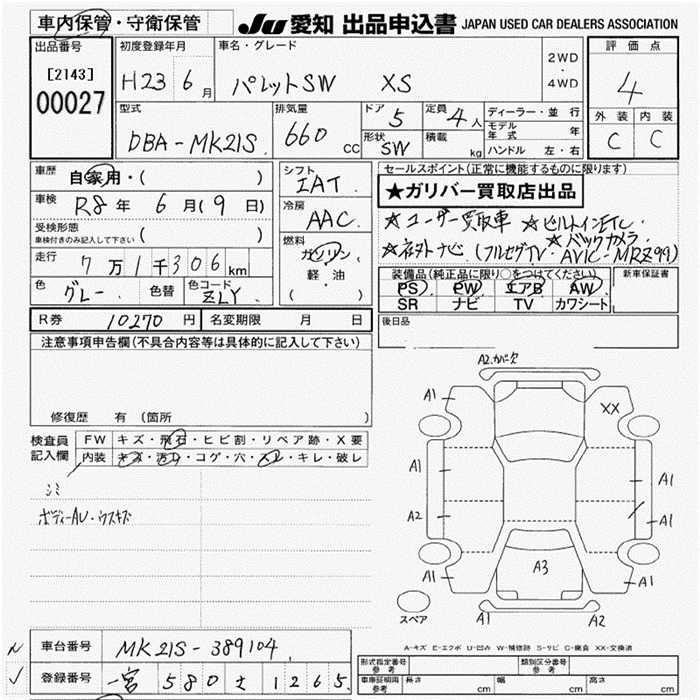 車内保管・守衛保管
JU 愛知 出品申込書 JAPAN USED CAR DEALERS ASSOCIATION
出品番号
[2143]
00027
初度登録年月
H23 6月
車名・グレード
パレットSW XS
2WD
・
4WD
評価点
4
外装 内装
C C
型式
DBA-MK21S
排気量
660 CC
ドア 5
定員 4人
形状 SW
積載 kg
ディーラー・並行
モデル年式 年
ハンドル 左・右
車歴
自家用・( )
車検
R8年 6月(9日)
受検形態
車検付きのみ記入して下さい ( )
走行
7万1千306km
色 グレー 色替
色コード ZLY
シフト
IAT
冷房
AAC
燃料
ガソリン
軽・油
( ・ )
セールスポイント(正常に機能するものに限ります)
★ガリバー買取店出品
☆ユーザー買取車 ☆ビルトインETC・
☆バックカメラ
☆ネオトナビ(フルセグTV・AVIC-MRZ99)
装備品(純正品に限り○をつけてください)
PS PW エアB AW
SR ナビ TV カワシート
新車保証書
後日品
R券 10270円
名変期限 月 日
注意事項申告欄(不具合内容等は具体的に記入して下さい)
修復歴 有 (箇所 )
検査員
記入欄
FW キズ・飛石・ヒビ割・リペア跡・X要
内装 キズ・汚れ・コゲ・穴・スレ・キレ・破レ
シミ
ボディーAU・ウスキズ
A2.カバー欠
A1
XX
A1
A1
A2
A1
A3
A1
A1
A1
A2
スペア
A-キズ E-エクボ U-凹み W-補修跡 S-サビ C-腐食 XX-交換済
車台番号 MK21S-389104
登録番号 一宮 580 さ 1265
形式指定番号
参考
類別区分番号
参考
車庫証明用
参考
長さ cm
幅 cm
高さ cm